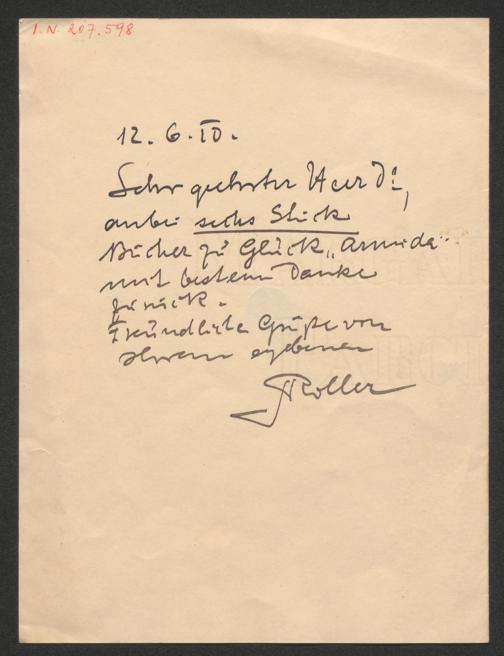 I.N. 207.598
12. 6. 10.
Sehr geehrter Herr Dr,
anbei sechs Stück
Bücher zu Glück „Armida“
mit bestem Danke
zurück.
Freundliche Grüße von
Ihrem ergebenen
ARoller